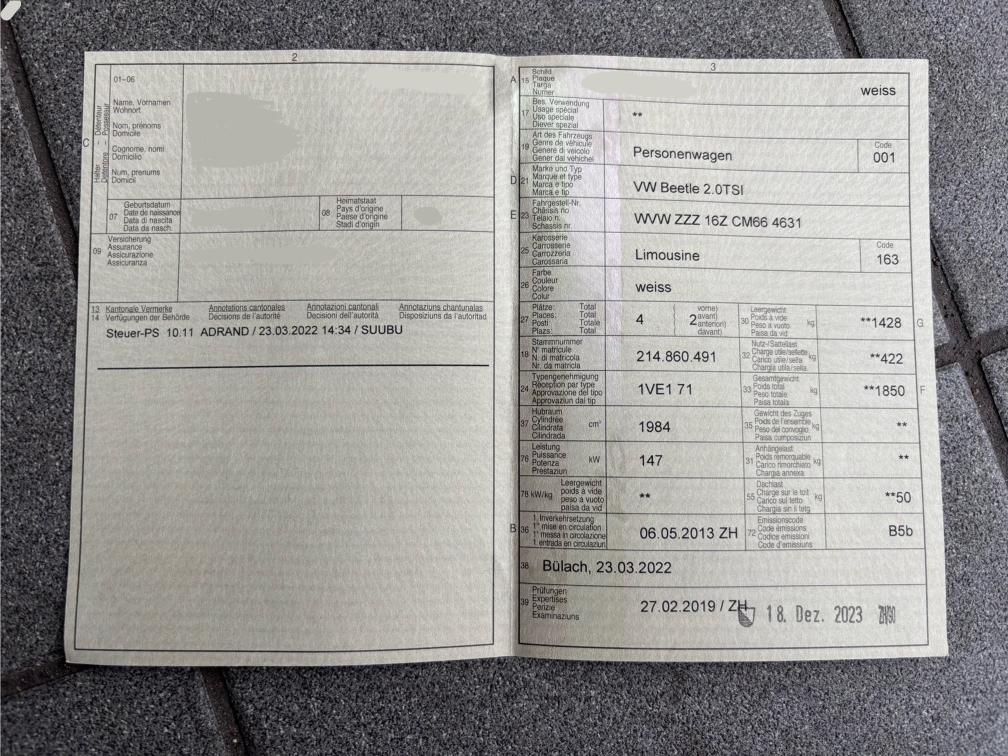 2
01-06
Name, Vornamen
Wohnort
Nom, prénoms
Domicile
Cognome, nomi
Domicilio
Num, prenums
Domicil
C
Halter
Détenteur
Detentore
Possessur
07
Geburtsdatum
Date de naissance
Data di nascita
Data da nasch.
08
Heimatstaat
Pays d'origine
Paese d'origine
Stadi d'origin
09
Versicherung
Assurance
Assicurazione
Assicuranza
13 Kantonale Vermerke Annotations cantonales Annotazioni cantonali Annotaziuns chantunalas
14 Verfügungen der Behörde Décisions de l'autorité Decisioni dell'autorità Disposiziuns da l'autoritad
Steuer-PS 10.11 ADRAND / 23.03.2022 14:34 / SUUBU
3
A 15
Schild
Plaque
Targa
Numer
weiss
17
Bes. Verwendung
Usage spécial
Uso speciale
Diever spezial
**
19
Art des Fahrzeugs
Genre de véhicule
Genere di veicolo
Gener dal vehichel
Personenwagen
Code
001
D 21
Marke und Typ
Marque et type
Marca e tipo
Marca e tip
VW Beetle 2.0TSI
E 23
Fahrgestell-Nr.
Châssis no
Telaio n.
Schassis nr.
WVW ZZZ 16Z CM66 4631
25
Karosserie
Carrosserie
Carrozzeria
Carossaria
Limousine
Code
163
26
Farbe
Couleur
Colore
Colur
weiss
27
Plätze: Total
Places: Total
Posti: Totale
Plazs: Total
4
2
vorne)
avant)
anteriori)
davant)
30
Leergewicht
Poids à vide
Peso a vuoto
Paisa da vid
kg
**1428
G
18
Stammnummer
N° matricule
N. di matricola
Nr. da matricla
214.860.491
32
Nutz-/Sattellast
Charge utile/sellette
Carico utile/sella
Chargia utila/sella
kg
**422
24
Typengenehmigung
Réception par type
Approvazione del tipo
Approvaziun dal tip
1VE1 71
33
Gesamtgewicht
Poids total
Peso totale
Paisa totala
kg
**1850
F
37
Hubraum
Cylindrée
Cilindrata
Cilindrada
cm³
1984
35
Gewicht des Zuges
Poids de l'ensemble
Peso del convoglio
Paisa cumposiziun
kg
**
76
Leistung
Puissance
Potenza
Prestaziun
kW
147
31
Anhängelast
Poids remorquable
Carico rimorchiato
Chargia annexa
kg
**
78 kW/kg
Leergewicht
poids à vide
peso a vuoto
paisa da vid
**
55
Dachlast
Charge sur le toit
Carico sul tetto
Chargia sin il tetg
kg
**50
B 36
1. Inverkehrsetzung
1re mise en circulation
1a messa in circolazione
1. entrada en circulaziun
06.05.2013 ZH
72
Emissionscode
Code émissions
Codice emissioni
Code d'emissiuns
B5b
38
Bülach, 23.03.2022
39
Prüfungen
Expertises
Perizie
Examinaziuns
27.02.2019 / ZH
18. Dez. 2023